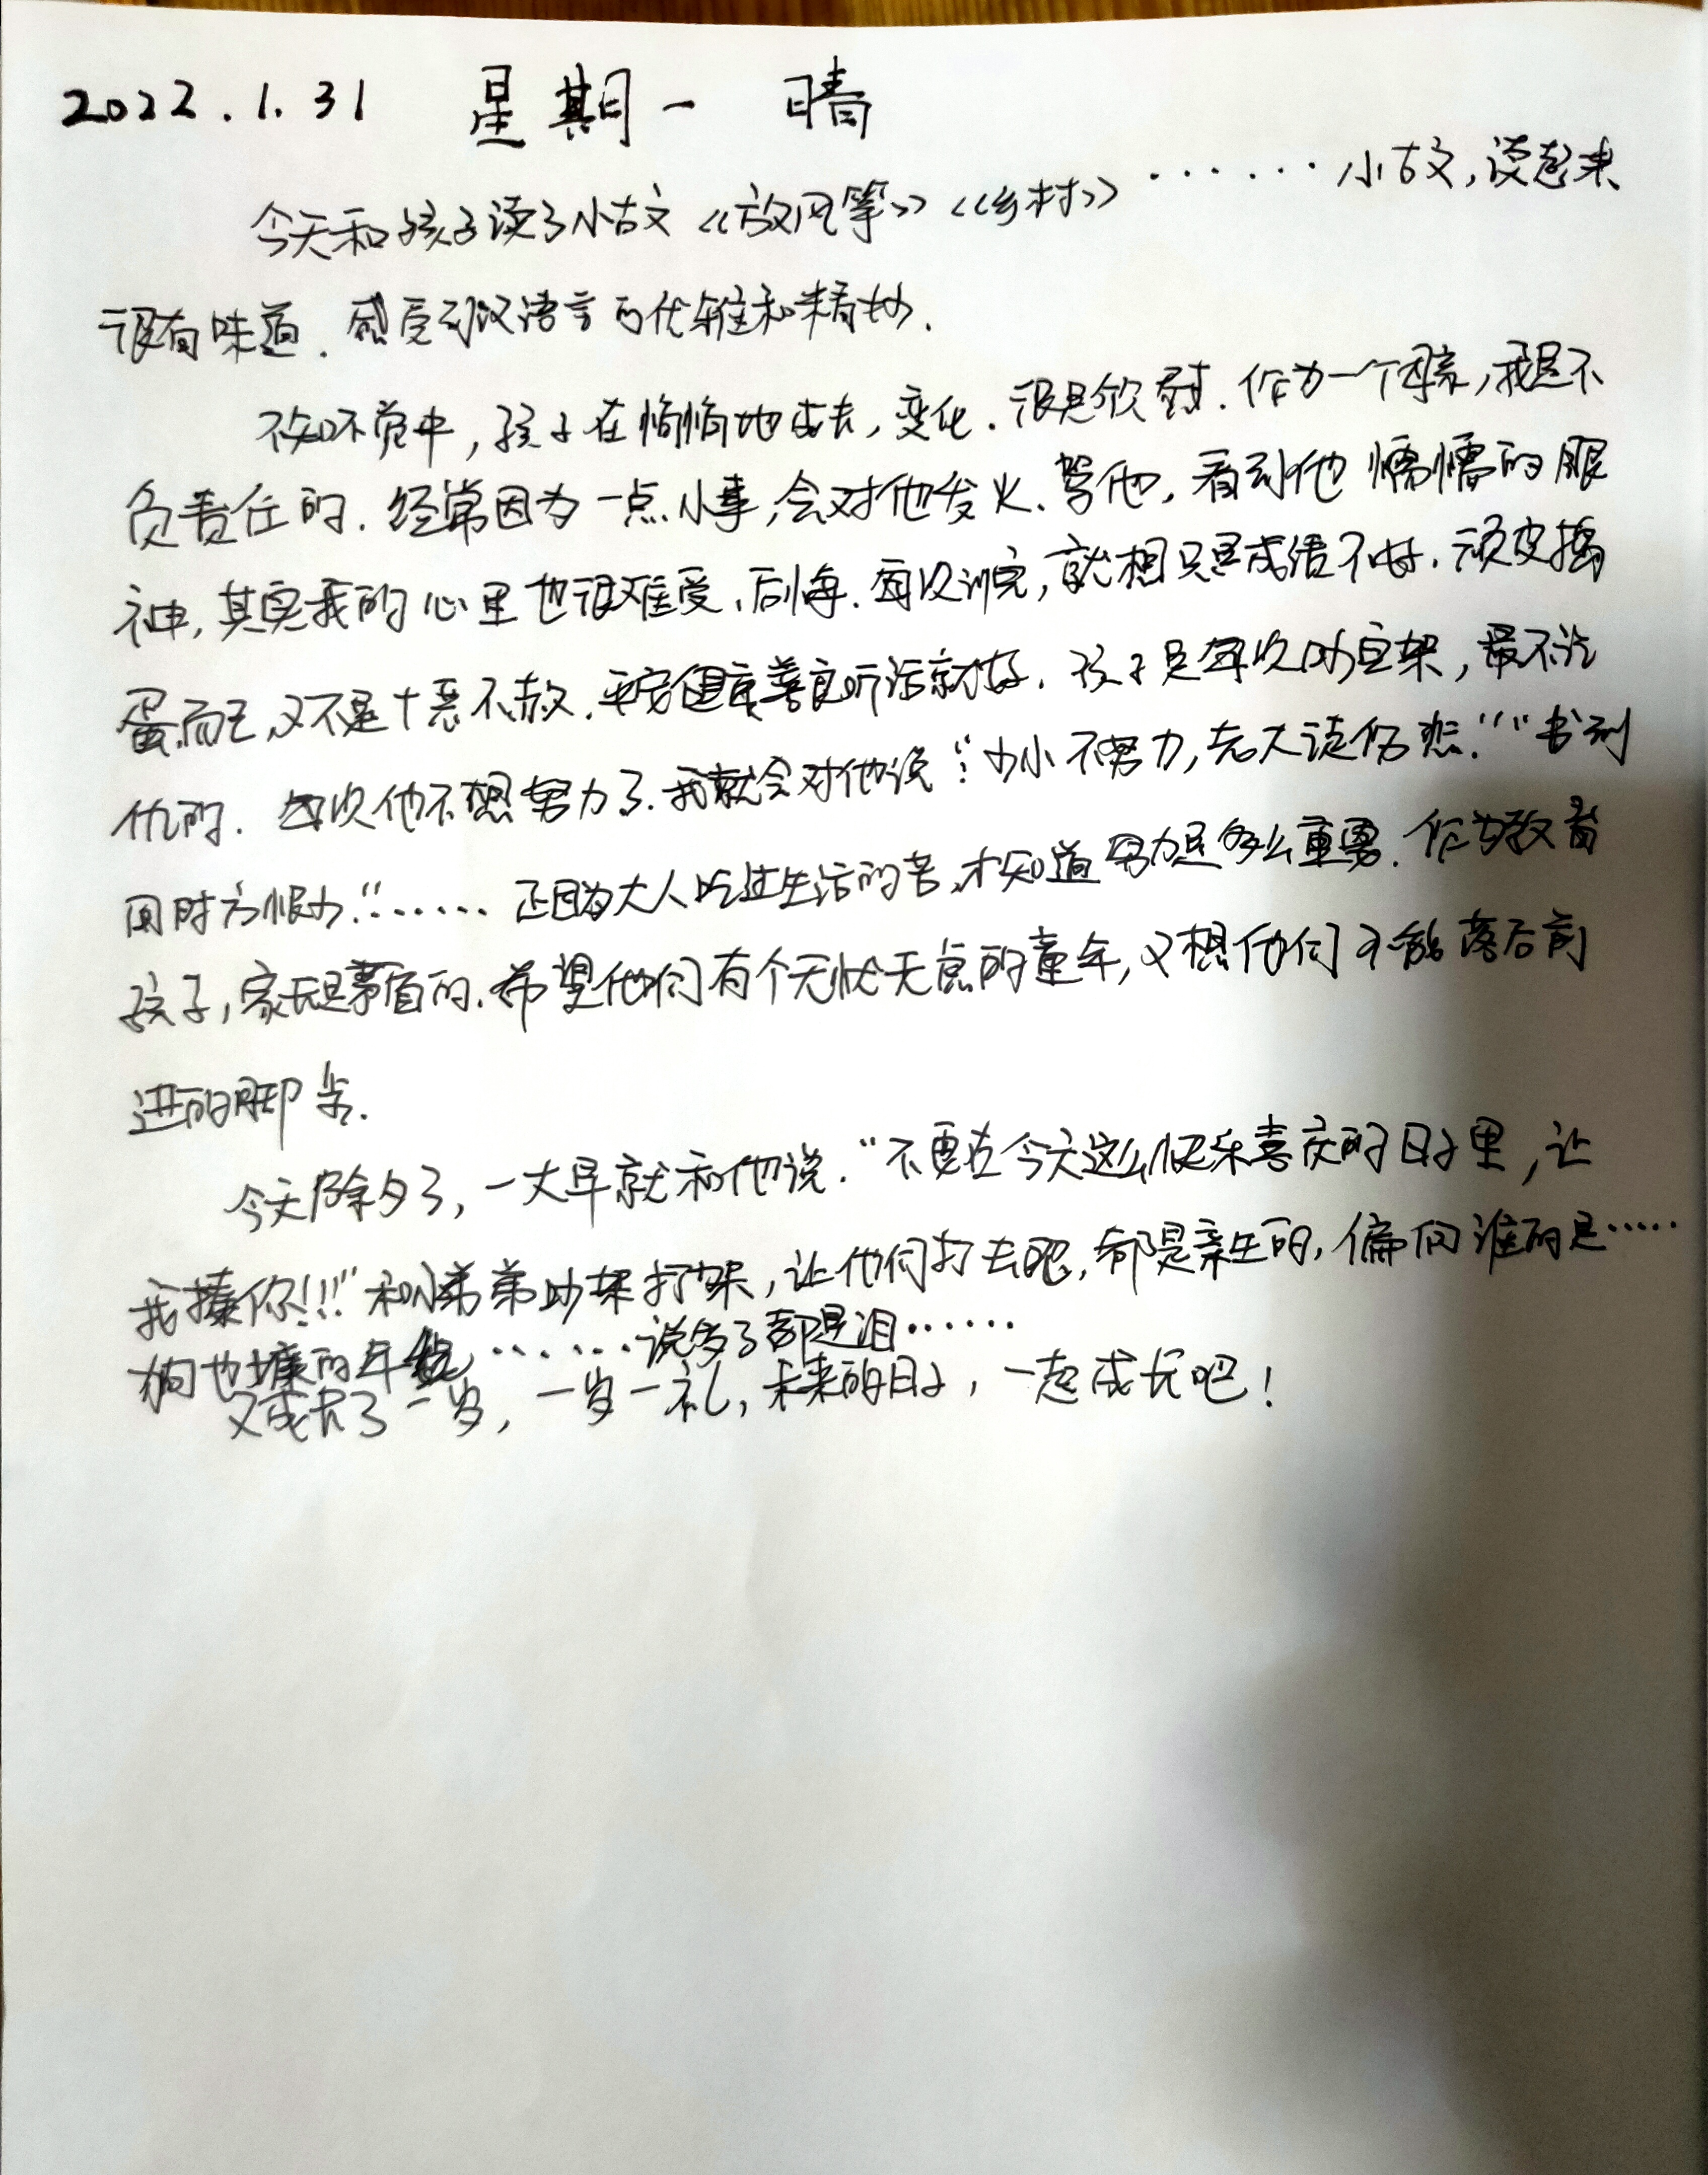 2022.1.31 星期一 晴
今天和孩子读了小古文《放风筝》《乡村》······小古文,读起来
很有味道.感受到汉语言的优雅和精妙.
不知不觉中,孩子在悄悄地成长,变化.很是欣慰.作为一个母亲,我是不
负责任的.经常因为一点小事,会对他发火.骂他,看到他懦懦的眼
神,其实我的心里也很难受、后悔.每次训完,就想只是成绩不好.顽皮捣
蛋而已,又不是十恶不赦.平安健康善良听话就好.孩子是每次吵完架,最不记
仇的.每次他不想努力了.我就会对他说:“少小不努力,老大徒伤悲.”“书到
用时方恨少.”······正因为大人吃过生活的苦,才知道努力是多么重要.作为教育
孩子,家长是茅盾的.希望他们有个无忧无虑的童年,又想他们不能落后前
进的脚步.
今天除夕了,一大早就和他说.“不要在今天这么快乐喜庆的日子里,让
我揍你!!!”和小弟弟吵架打架,让他们打去吧,都是亲生的,偏向谁的是·····
狗也嫌的年纪······说多了都是泪······
又成长了一岁,一岁一礼,未来的日子,一起成长吧!